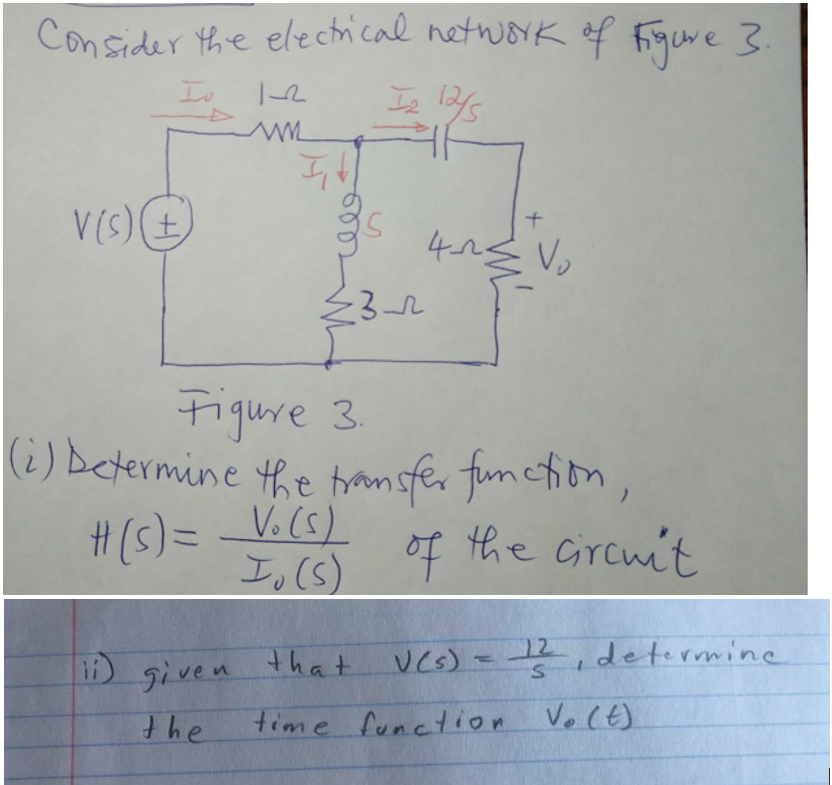 Consider the electrical network of Figure 3.
I₀ 1Ω I₂ 12/s
I₁
V(s) ± S 4Ω + V₀ -
3Ω
Figure 3.
(i) Determine the transfer function,
H(s) = V₀(s) / I₀(s) of the circuit
ii) given that V(s) = 12/s, determine
the time function V₀(t)